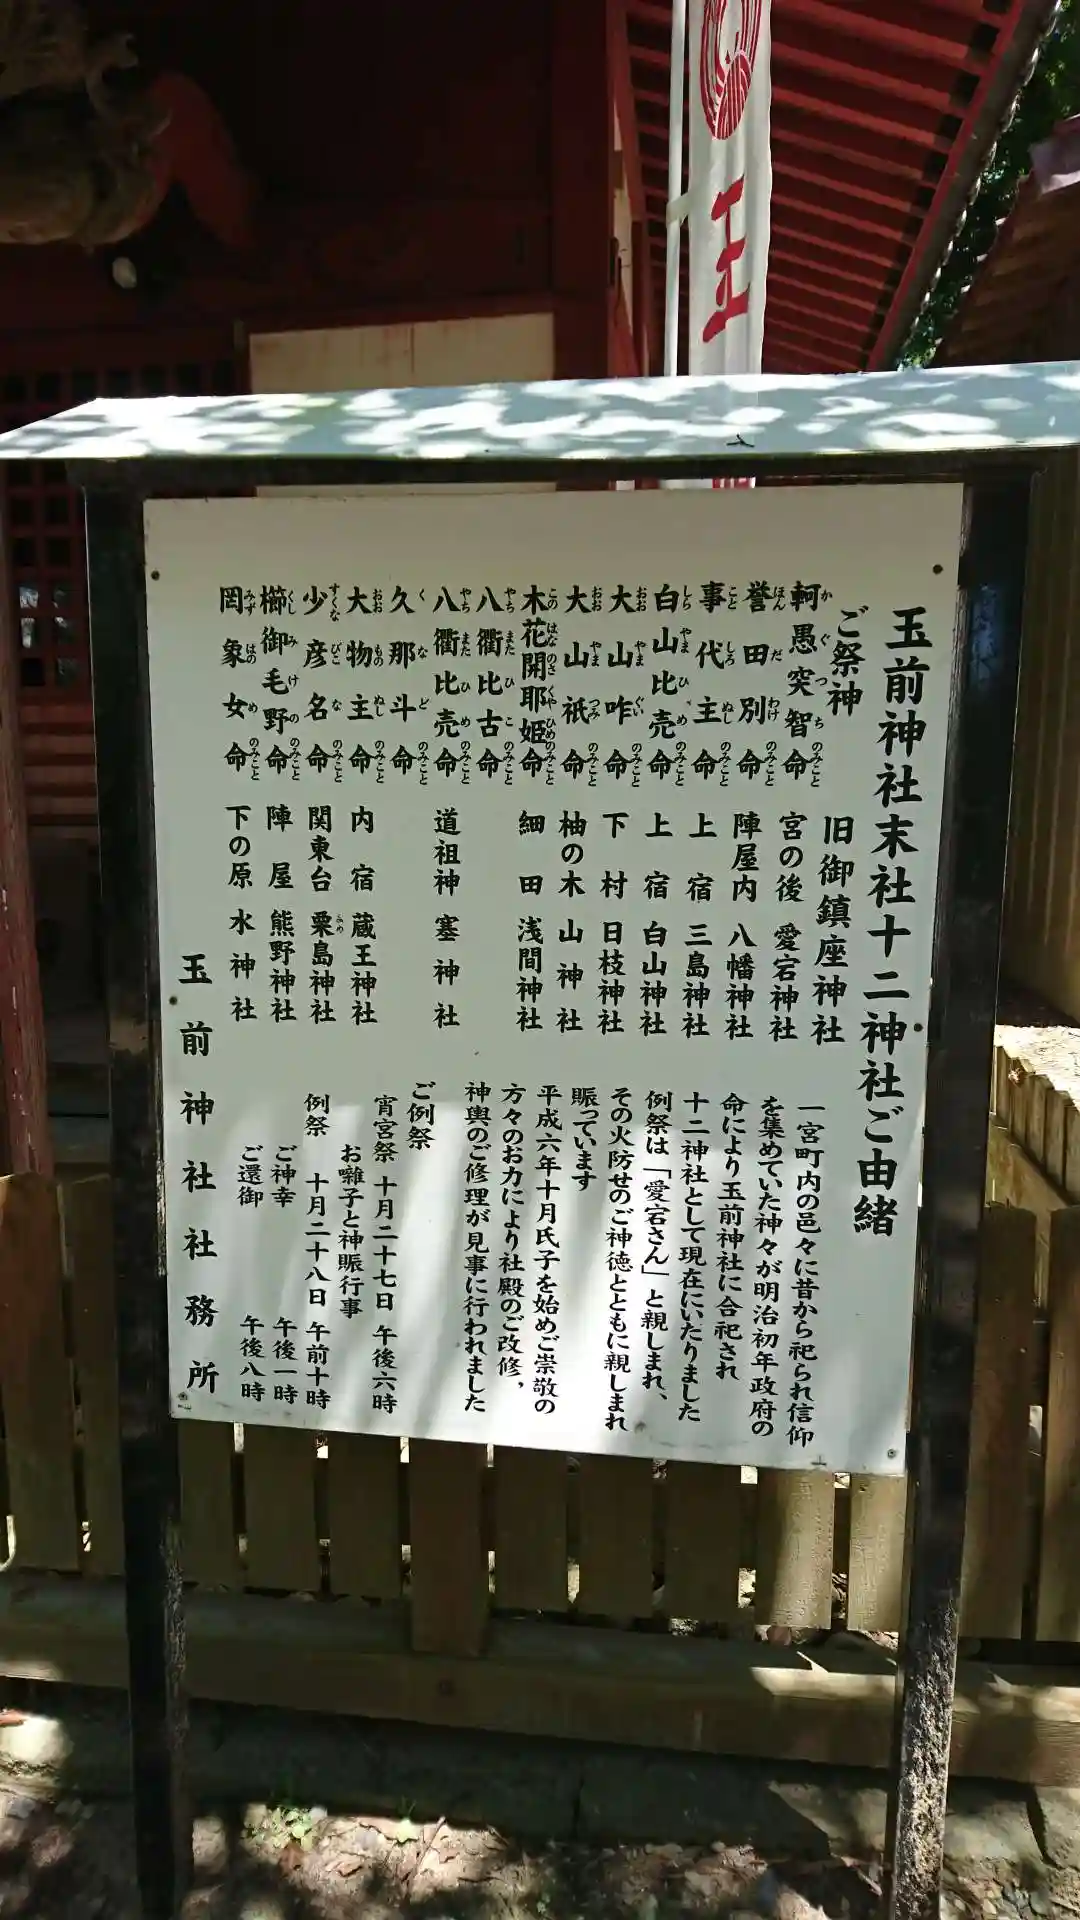 玉前神社末社十二神社ご由緒
ご祭神　旧御鎮座神社
軻愚突智命　宮の後　愛宕神社
誉田別命　陣屋内　八幡神社
事代主命　上宿　三島神社
白山比売命　上宿　白山神社
大山咋命　下村　日枝神社
大山祇命　柚の木　山神社
木花開耶姫命　細田　浅間神社
八衢比古命
八衢比売命　道祖神　塞神社
久那斗命
大物主命　内宿　蔵王神社
少彦名命　関東台　粟島神社
櫛御毛野命　陣屋　熊野神社
罔象女命　下の原　水神社
一宮町内の邑々に昔から祀られ信仰
を集めていた神々が明治初年政府の
命により玉前神社に合祀され
十二神社として現在にいたりました
例祭は「愛宕さん」と親しまれ、
その火防せのご神徳とともに親しまれ
賑っています
平成六年十月氏子を始めご崇敬の
方々のお力により社殿のご改修，
神輿のご修理が見事に行われました
ご例祭
宵宮祭　十月二十七日　午後六時
お囃子と神賑行事
例祭　十月二十八日　午前十時
ご神幸　午後一時
ご還御　午後八時
玉前神社社務所
玉